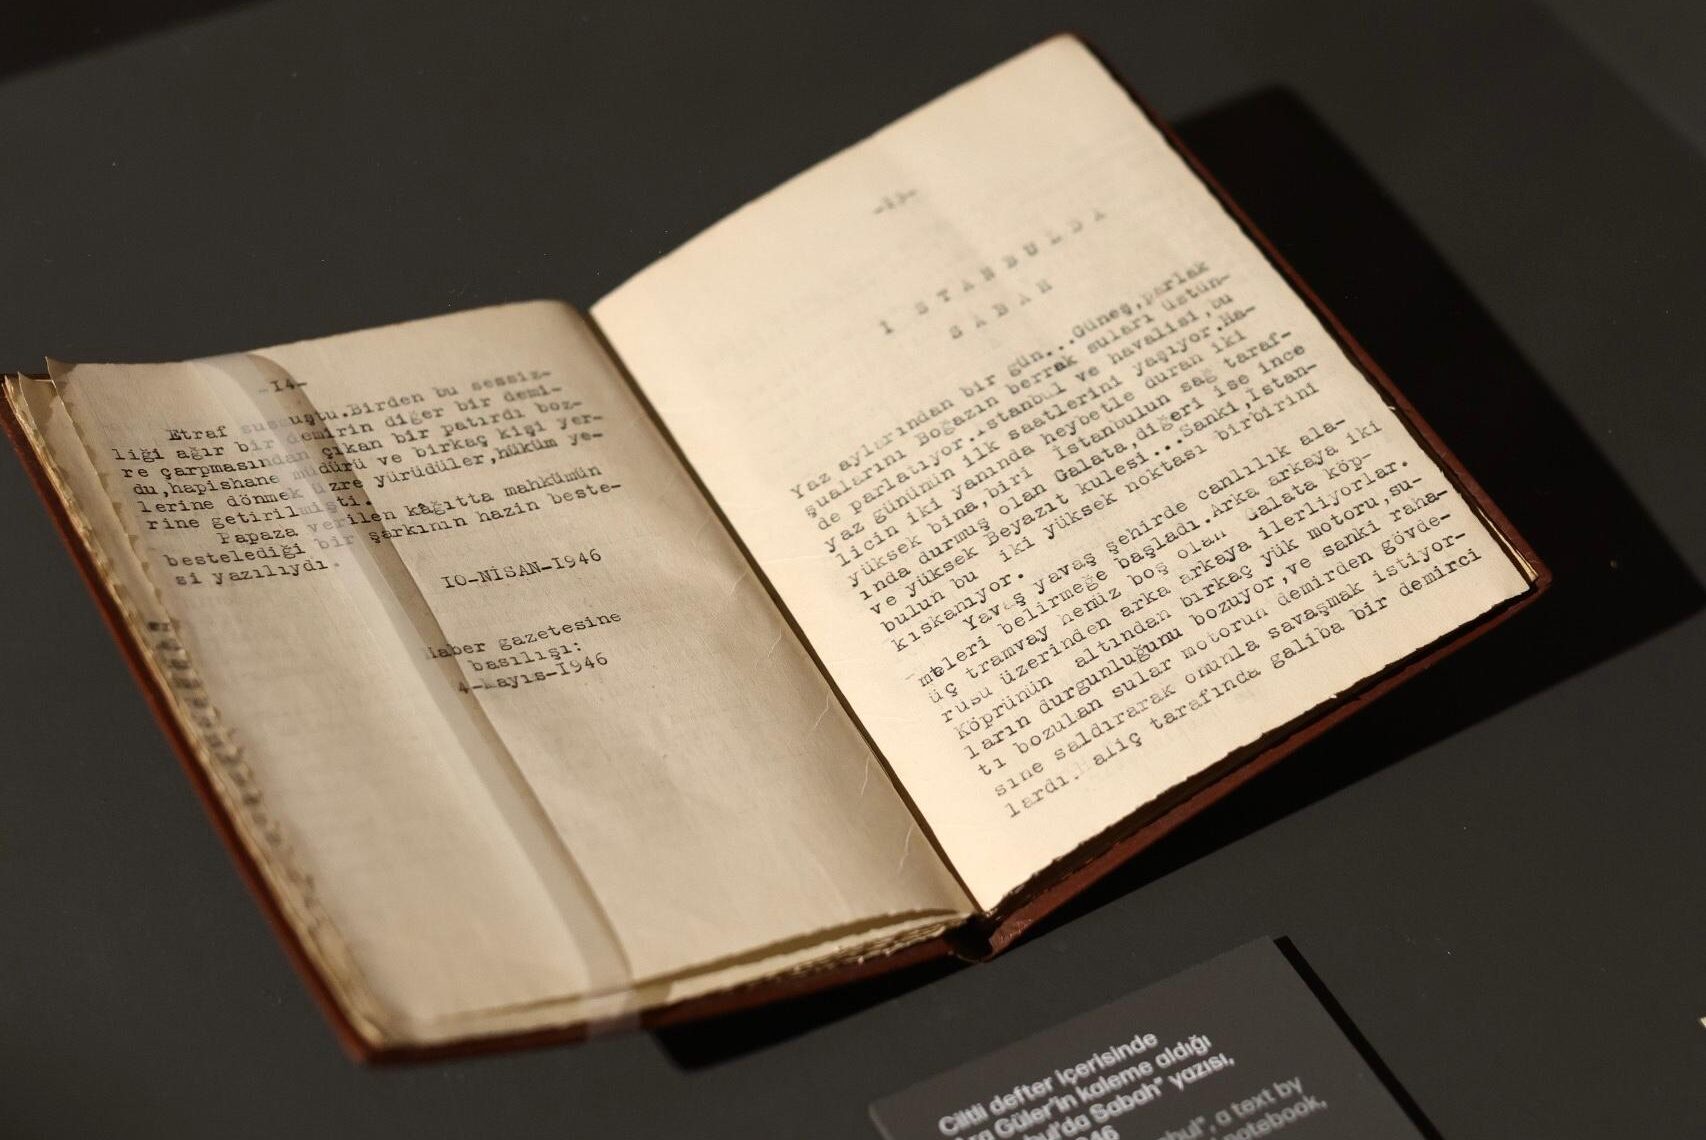 -14-
Etraf susmuştu.Birden bu sessiz-
liği ağır bir demirin diğer bir demi-
re çarpmasından çıkan bir patırdı boz-
du,hapishane müdürü ve birkaç kişi yer-
lerine dönmek üzre yürüdüler,hüküm ye-
rine getirilmişti.
Papaza verilen kağıtta mahkümün
bestelediği bir şarkının hazin beste-
si yazılıydı.
IO-NİSAN-I946
Haber gazetesine
basılışı:
4-Mayıs-I946
İSTANBULDA
SABAH
Yaz aylarından bir gün...Güneş,parlak
şualarını Boğazın berrak suları üstün-
de parlatıyor.İstanbul ve havalisi,bu
yaz gününün ilk saatlerini yaşıyor.Ha-
licin iki yanında heybetle duran iki
yüksek bina,biri İstanbulun sağ taraf-
ında durmuş olan Galata,diğeri ise ince
ve yüksek Beyazıt kulesi...Sanki,İstan-
bulun bu iki yüksek noktası birbirini
kıskanıyor.
Yavaş yavaş şehirde canlılık ala-
metleri belirmeğe başladı.Arka arkaya iki
üç tramvay henüz boş olan Galata köp-
rüsü üzerinden arka arkaya ilerliyorlar.
Köprünün altından birkaç yük motoru,su-
ların durgunluğunu bozuyor,ve sanki raha-
tı bozulan sular motorun demirden gövde-
sine saldırarak onunla savaşmak istiyor-
lardı.Haliç tarafında galiba bir demirci
Ciltli defter içerisinde
Ara Güler'in kaleme aldığı
Sabah" yazısı,
a text by
notebook,